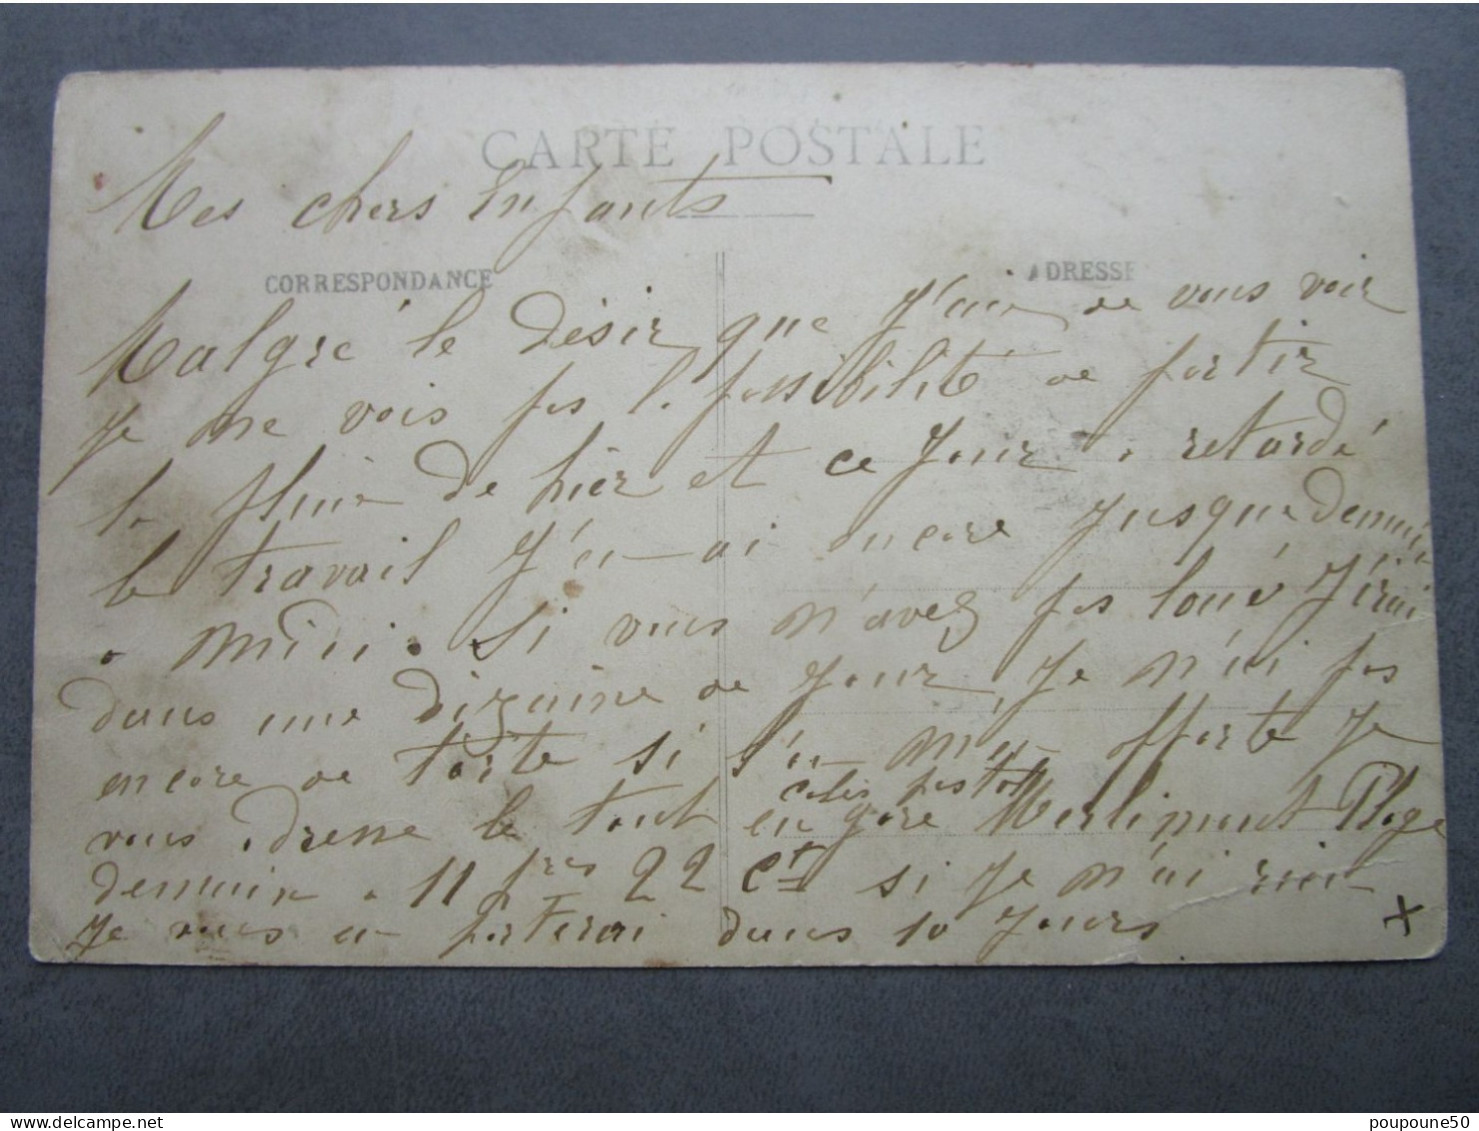 CARTE POSTALE
Mes chers Enfants
CORRESPONDANCE
ADRESSE
Malgré le désir que j'ai de vous voir
je ne vois pas la possibilité de partir
la pluie de hier et ce jour a retardé
le travail j'en ai encore jusque demain
a midi. si vous n'avez pas loué j'irai
dans une dizaine de jour, je n'ai pas
encore de tarte si s'en m'en apporte je
vous adresse le tout en gare Merlimont Plage
colis postal
demain a 11 hres 22 ct si je n'ai rien
je vous en porterai dans 10 jours
poupoune50